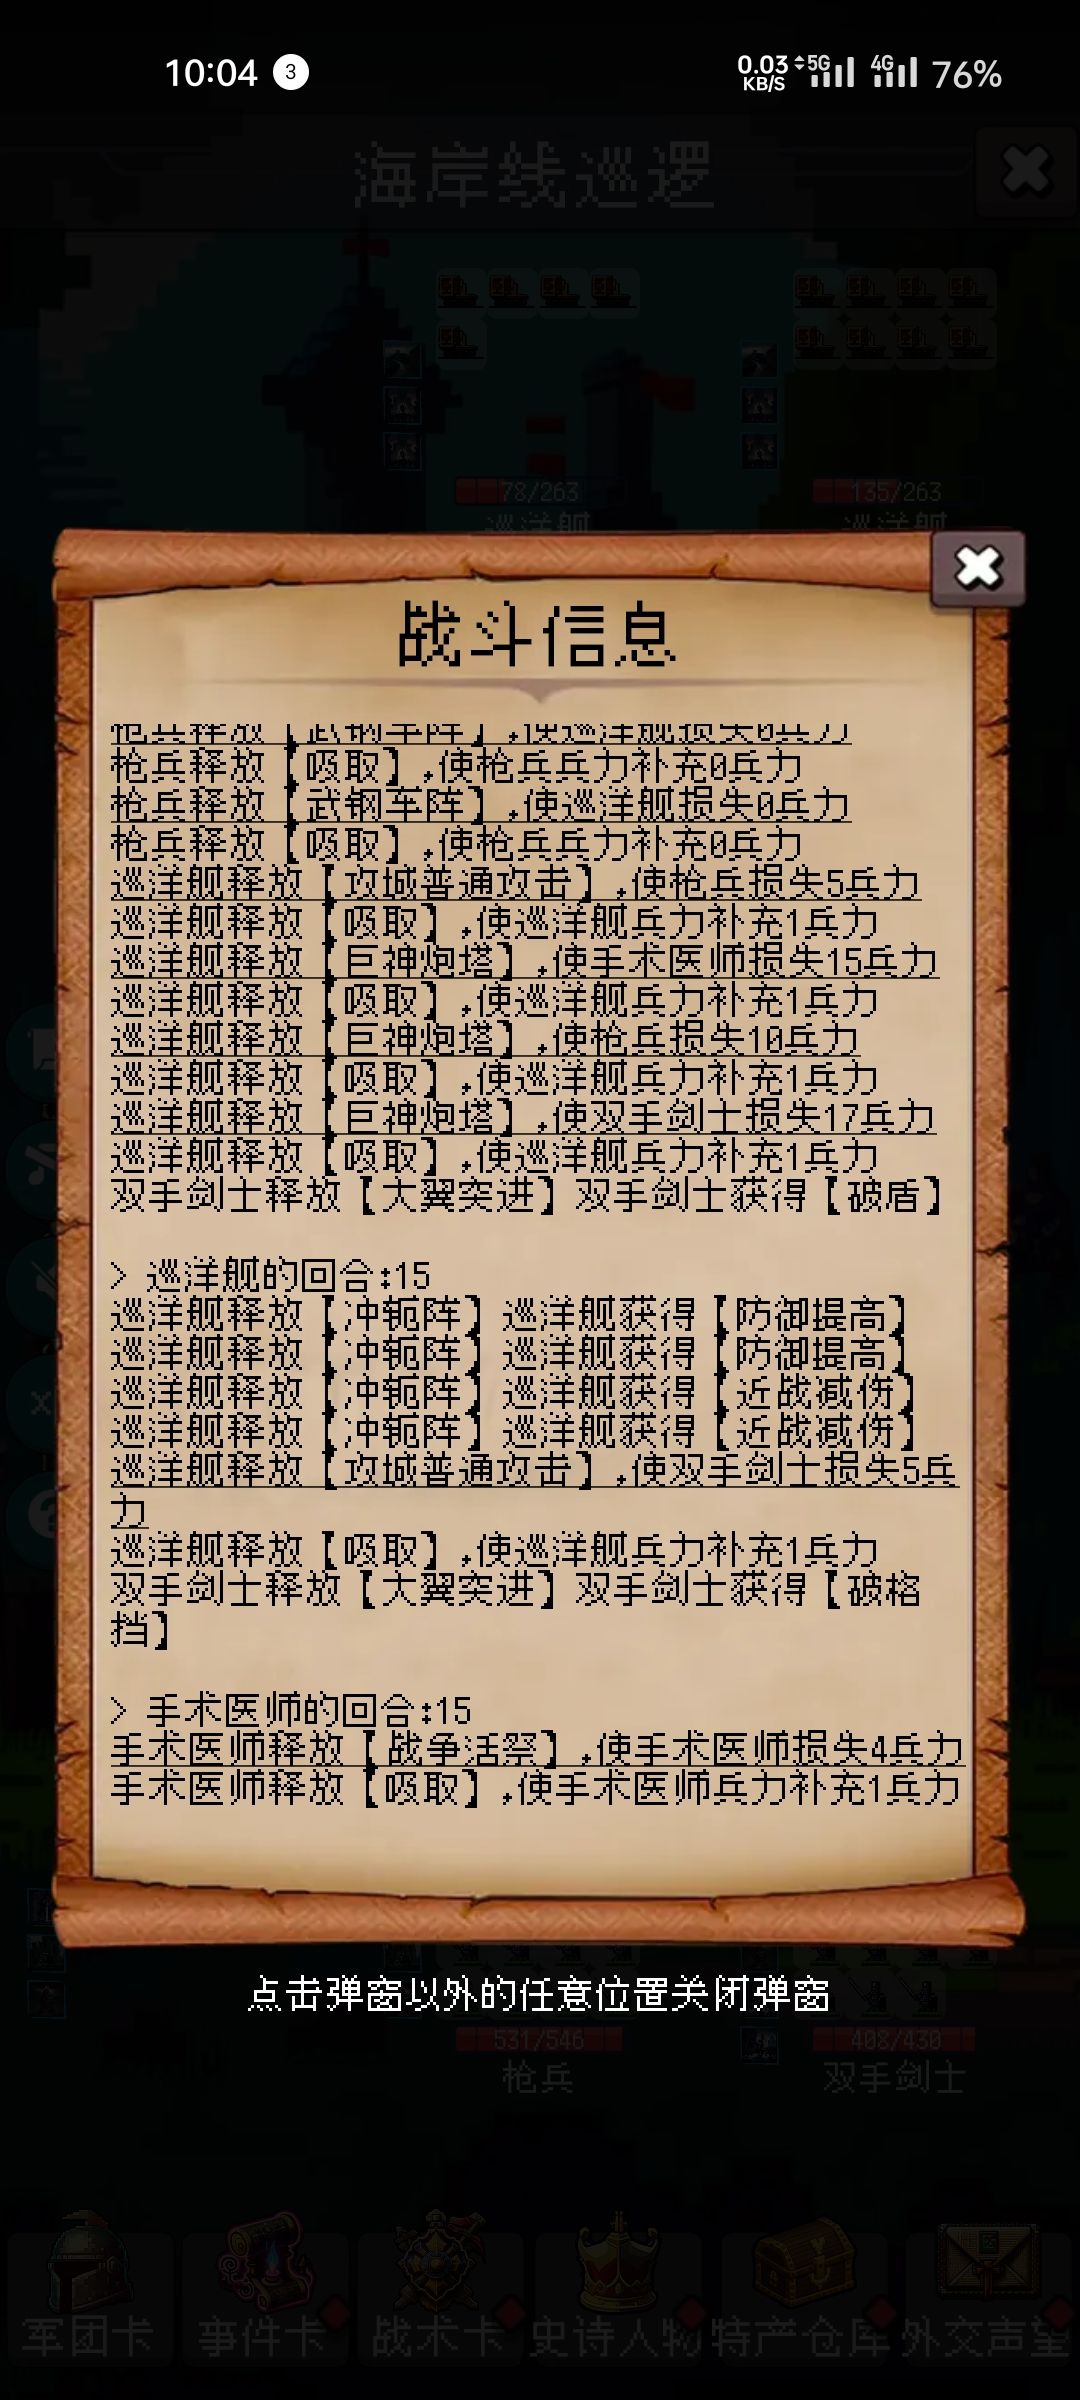 10:04
3
0.03 KB/S
5G
4G
76%
海岸线巡逻
78/263
135/263
巡洋舰
巡洋舰
战斗信息
枪兵释放【武钢车阵】,使巡洋舰损失0兵力
枪兵释放【吸取】,使枪兵兵力补充0兵力
枪兵释放【武钢车阵】,使巡洋舰损失0兵力
枪兵释放【吸取】,使枪兵兵力补充0兵力
巡洋舰释放【攻城普通攻击】,使枪兵损失5兵力
巡洋舰释放【吸取】,使巡洋舰兵力补充1兵力
巡洋舰释放【巨神炮塔】,使手术医师损失15兵力
巡洋舰释放【吸取】,使巡洋舰兵力补充1兵力
巡洋舰释放【巨神炮塔】,使枪兵损失10兵力
巡洋舰释放【吸取】,使巡洋舰兵力补充1兵力
巡洋舰释放【巨神炮塔】,使双手剑士损失17兵力
巡洋舰释放【吸取】,使巡洋舰兵力补充1兵力
双手剑士释放【大翼突进】 双手剑士获得【破盾】
> 巡洋舰的回合:15
巡洋舰释放【冲轭阵】 巡洋舰获得【防御提高】
巡洋舰释放【冲轭阵】 巡洋舰获得【防御提高】
巡洋舰释放【冲轭阵】 巡洋舰获得【近战减伤】
巡洋舰释放【冲轭阵】 巡洋舰获得【近战减伤】
巡洋舰释放【攻城普通攻击】,使双手剑士损失5兵
力
巡洋舰释放【吸取】,使巡洋舰兵力补充1兵力
双手剑士释放【大翼突进】 双手剑士获得【破格
挡】
> 手术医师的回合:15
手术医师释放【战争活祭】,使手术医师损失4兵力
手术医师释放【吸取】,使手术医师兵力补充1兵力
点击弹窗以外的任意位置关闭弹窗
531/546
408/430
枪兵
双手剑士
军团卡
事件卡
战术卡
史诗人物
特产仓库
外交声望